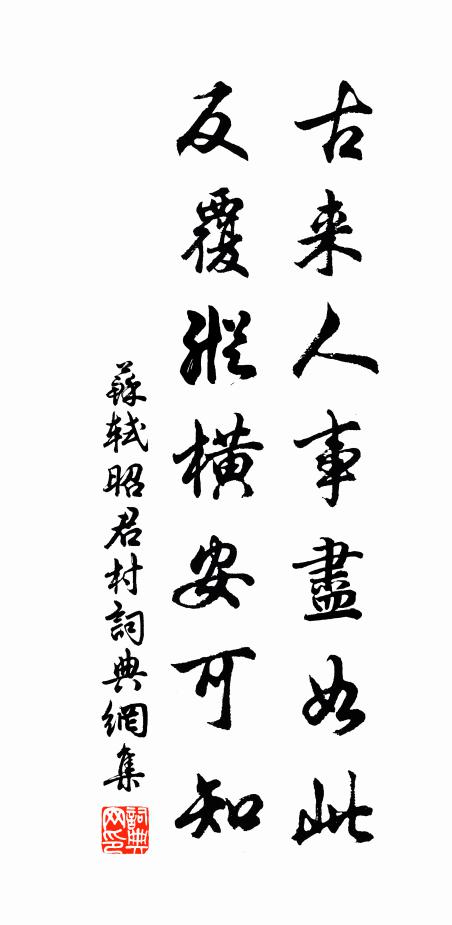 古来人事盡如此
反覆縱橫安可知
蘇軾昭君村詞典網集
詞典网印